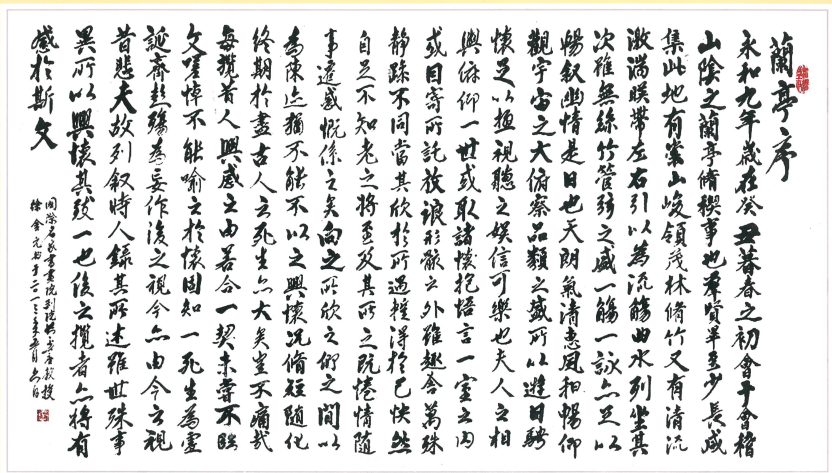 蘭亭序
永和九年歲在癸丑暮春之初會于會稽
山陰之蘭亭脩稧事也羣賢畢至少長咸
集此地有崇山峻領茂林脩竹又有清流
激湍暎帶左右引以為流觴曲水列坐其
次雖無絲竹管弦之盛一觴一詠亦足以
暢叙幽情是日也天朗氣清惠風和暢仰
觀宇宙之大俯察品類之盛所以遊目騁
懷足以極視聽之娛信可樂也夫人之相
與俯仰一世或取諸懷抱悟言一室之内
或因寄所託放浪形骸之外雖趣舍萬殊
静躁不同當其欣於所遇暫得於己快然
自足不知老之將至及其所之既惓情隨
事遷感慨係之矣向之所欣仰之間以
為陳迹猶不能不以之興懷況脩短隨化
終期於盡古人云死生亦大矣豈不痛哉
每攬昔人興感之由若合一契未嘗不臨
文嗟悼不能喻之於懷固知一死生為虛
誕齊彭殤為妄作後之視今亦由今之視
昔悲夫故列叙時人錄其所述雖世殊事
異所以興懷其致一也後之攬者亦將有
感於斯文
國際名家書畫院副院長教授
徐金元書于二〇一三年五月